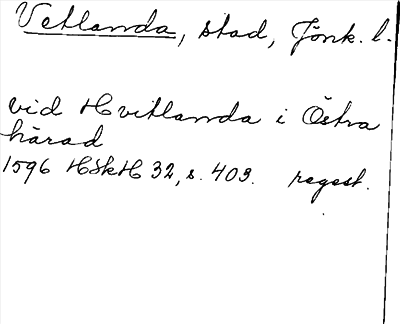 Vetlanda, stad, Jönk. l.
vid Hvitlanda i Östra
härad
1596 HSkH 32, s. 403. regest.